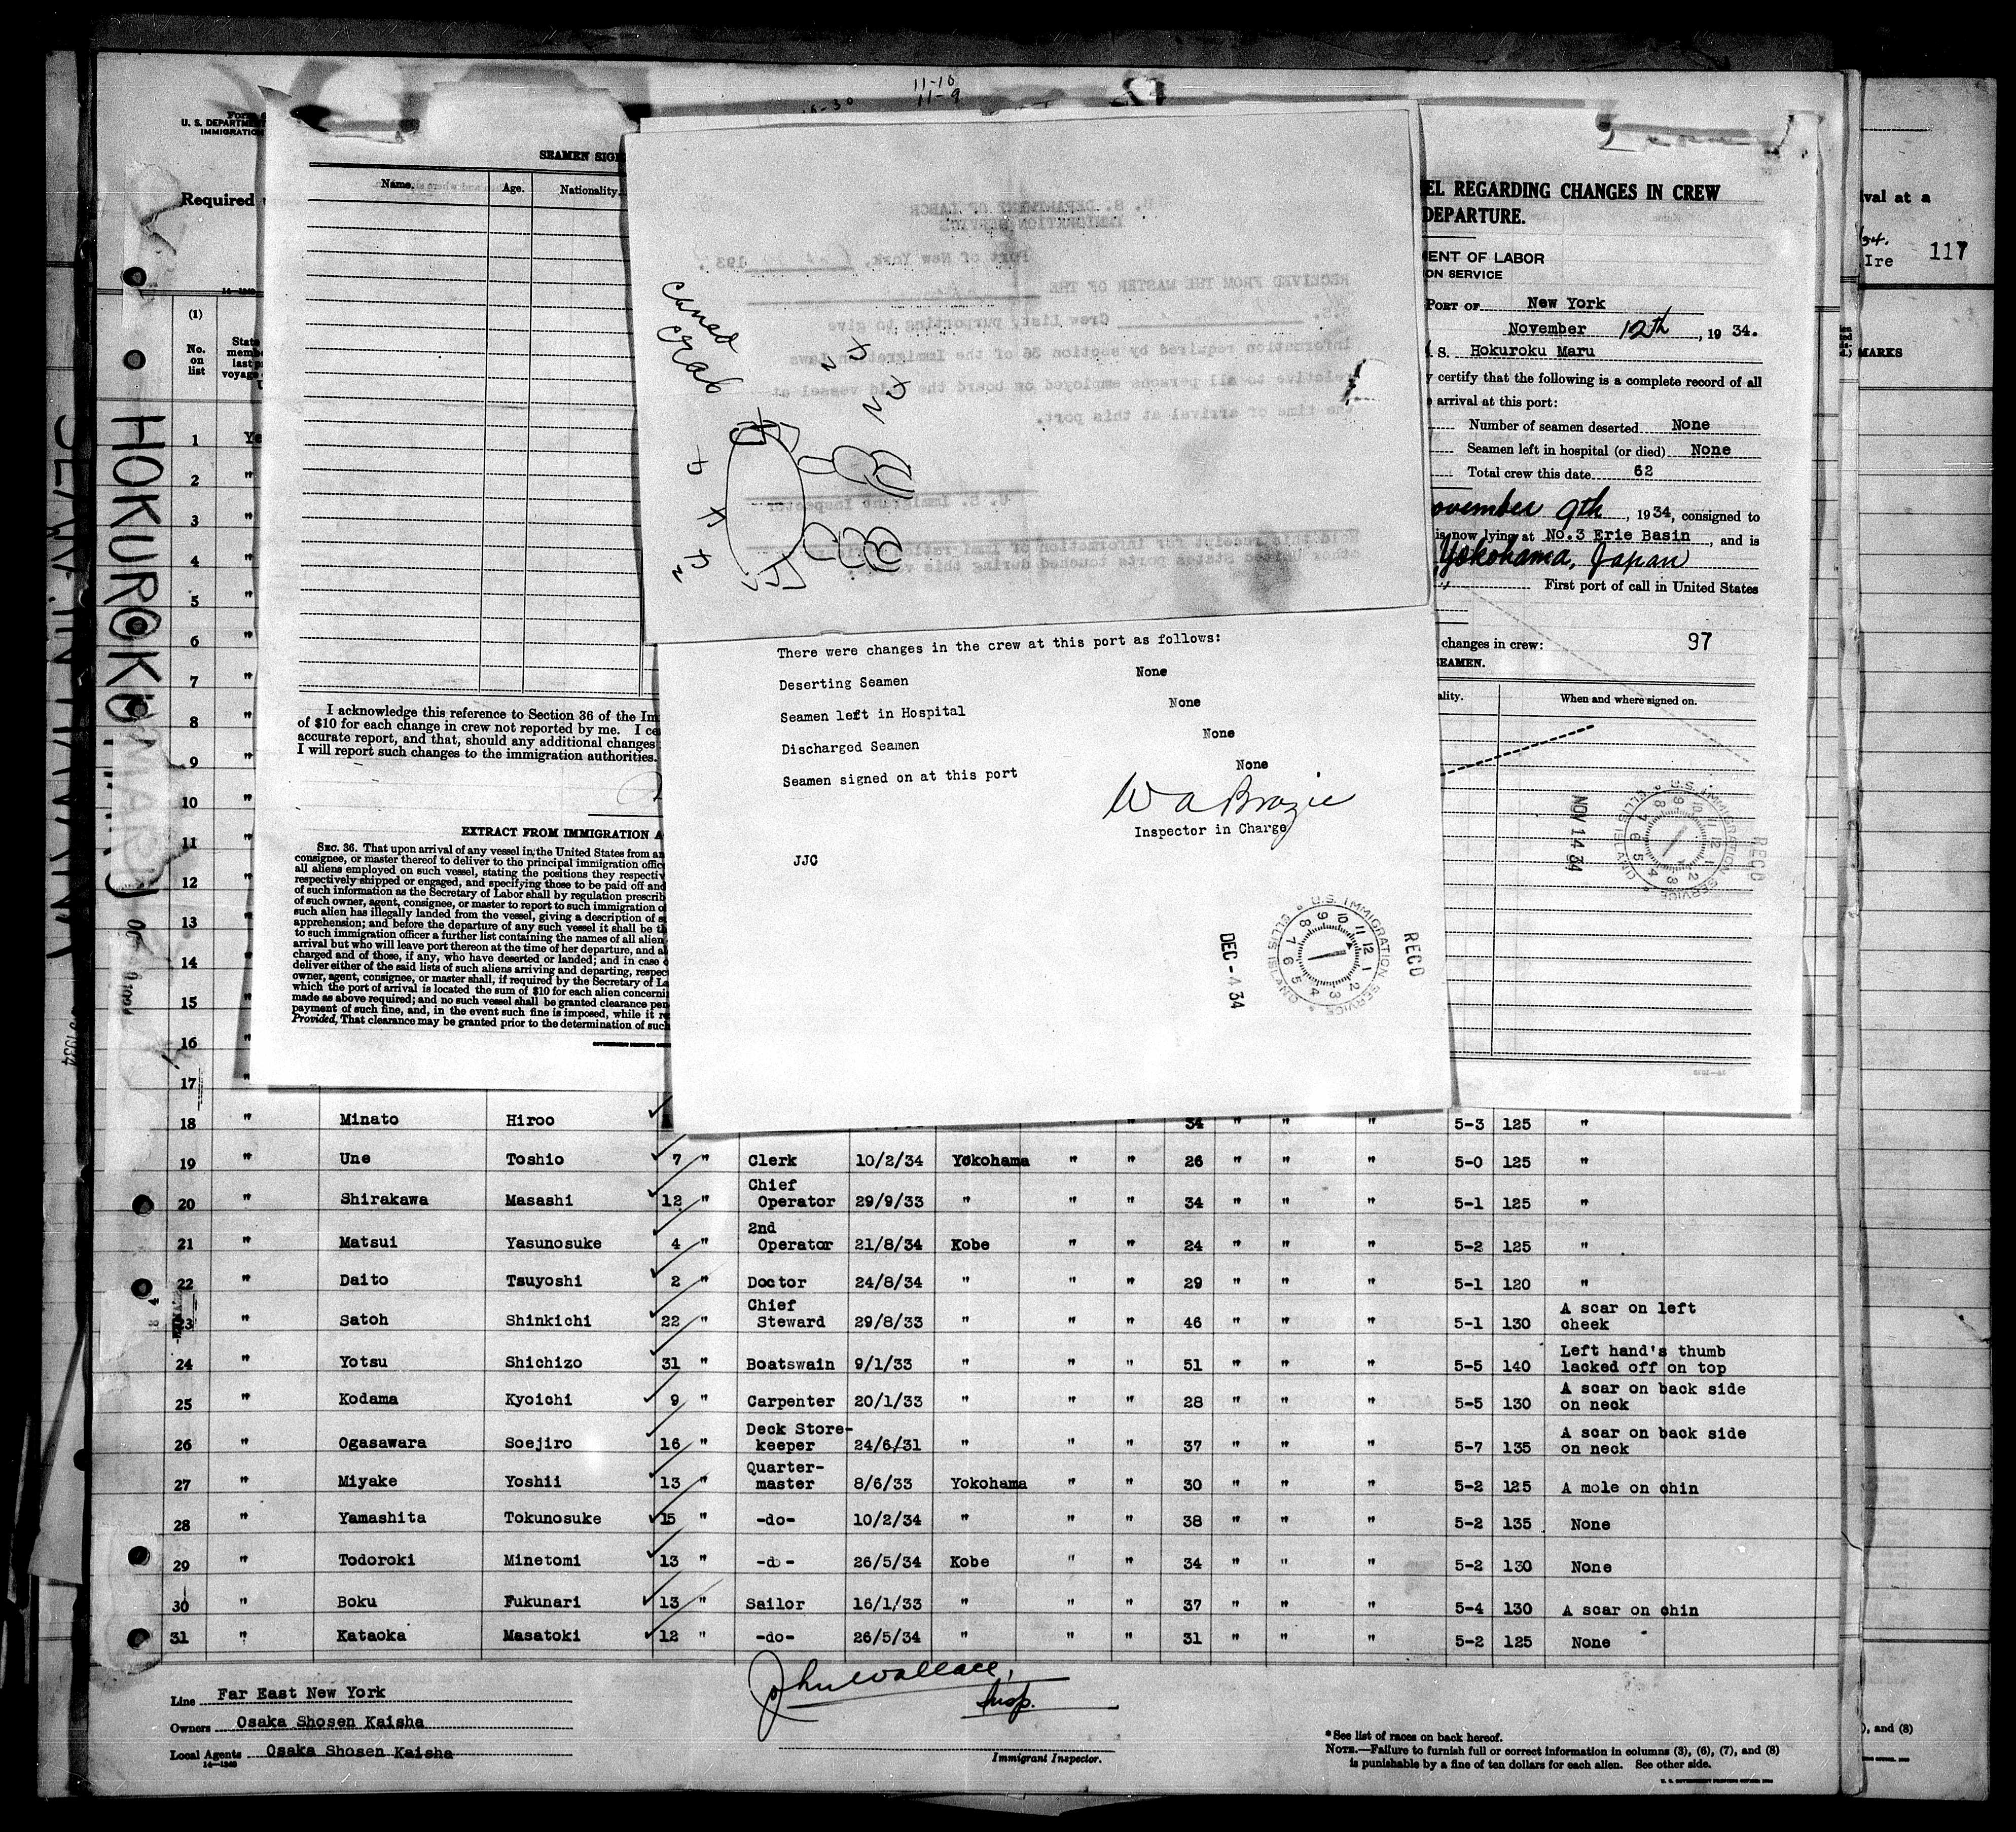 11-10
11-9
U. S. DEPARTM
IMMIGRATION
Required
SEAMEN SIG
Name. Age. Nationality.
I acknowledge this reference to Section 36 of the Im
of $10 for each change in crew not reported by me. I ce
accurate report, and that, should any additional changes
I will report such changes to the immigration authorities.
EXTRACT FROM IMMIGRATION A
SEC. 36. That upon arrival of any vessel in the United States from an
consignee, or master thereof to deliver to the principal immigration offic
all aliens employed on such vessel, stating the positions they respectiv
respectively shipped or engaged, and specifying those to be paid off and
of such information as the Secretary of Labor shall by regulation prescrib
of such owner, agent, consignee, or master to report to such immigration o
such alien has illegally landed from the vessel, giving a description of s
apprehension; and before the departure of any such vessel it shall be th
to such immigration officer a further list containing the names of all alien
arrival but who will leave port thereon at the time of her departure, and a
charged and of those, if any, who have deserted or landed; and in case o
deliver either of the said lists of such aliens arriving and departing, respec
owner, agent, consignee, or master shall, if required by the Secretary of La
which the port of arrival is located the sum of $10 for each alien concerni
made as above required; and no such vessel shall be granted clearance pen
payment of such fine, and, in the event such fine is imposed, while it re
Provided, That clearance may be granted prior to the determination of such
crab
U. S. DEPARTMENT OF LABOR
IMMIGRATION SERVICE
Port of New York, 193
RECEIVED FROM THE MASTER OF THE
S.S. Crew List, purporting to give
information required by section 36 of the Immigration Laws
relative to all persons employed on board the said vessel at
the time of arrival at this port.
U. S. Immigrant Inspector
Hold this receipt for information of Immigration
other United States ports touched during this
There were changes in the crew at this port as follows:
Deserting Seamen None
Seamen left in Hospital None
Discharged Seamen None
Seamen signed on at this port None
W A Brazie
Inspector in Charge
JJC
RECD
U.S. IMMIGRATION SERVICE
ELLIS ISLAND
DEC -4 34
EL REGARDING CHANGES IN CREW
DEPARTURE.
ENT OF LABOR
ON SERVICE
PORT OF New York
November 12th, 1934.
S. Hokuroku Maru
y certify that the following is a complete record of all
arrival at this port:
Number of seamen deserted None
Seamen left in hospital (or died) None
Total crew this date 62
ovember 9th, 1934, consigned to
is now lying at No.3 Erie Basin, and is
Yokohama, Japan
First port of call in United States
changes in crew: 97
EAMEN.
ality. When and where signed on.
RECD
U.S. IMMIGRATION SERVICE
ELLIS ISLAND
NOV 14 34
val at a
Ire 117
MARKS
HOKUROKU MARU
(1)
No.
on
list
State
memb
last p
voyage
1 Ye
2 "
3 "
4 "
5 "
6 "
7 "
8 "
9 "
10 "
11 "
12 "
13 "
14 "
15 "
16 "
17 "
18 " Minato Hiroo 34 " " " 5-3 125 "
19 " Une Toshio 7 " Clerk 10/2/34 Yokohama " " 26 " " " 5-0 125 "
20 " Shirakawa Masashi 12 " Chief Operator 29/9/33 " " " 34 " " " 5-1 125 "
21 " Matsui Yasunosuke 4 " 2nd Operator 21/8/34 Kobe " " 24 " " " 5-2 125 "
22 " Daito Tsuyoshi 2 " Doctor 24/8/34 " " " 29 " " " 5-1 120 "
23 " Satoh Shinkichi 22 " Chief Steward 29/8/33 " " " 46 " " " 5-1 130 A scar on left cheek
24 " Yotsu Shichizo 31 " Boatswain 9/1/33 " " " 51 " " " 5-5 140 Left hand's thumb lacked off on top
25 " Kodama Kyoichi 9 " Carpenter 20/1/33 " " " 28 " " " 5-5 130 A scar on back side on neck
26 " Ogasawara Soejiro 16 " Deck Store-keeper 24/6/31 " " " 37 " " " 5-7 135 A scar on back side on neck
27 " Miyake Yoshii 13 " Quarter-master 8/6/33 Yokohama " " 30 " " " 5-2 125 A mole on chin
28 " Yamashita Tokunosuke 15 " -do- 10/2/34 " " " 38 " " " 5-2 135 None
29 " Todoroki Minetomi 13 " -do- 26/5/34 Kobe " " 34 " " " 5-2 130 None
30 " Boku Fukunari 13 " Sailor 16/1/33 " " " 37 " " " 5-4 130 A scar on chin
31 " Kataoka Masatoki 12 " -do- 26/5/34 " " " 31 " " " 5-2 125 None
Line Far East New York
Owners Osaka Shosen Kaisha
Local Agents Osaka Shosen Kaisha
14-1240
John Wallace,
Insp.
Immigrant Inspector.
*See list of races on back hereof.
NOTE.—Failure to furnish full or correct information in columns (3), (6), (7), and (8)
is punishable by a fine of ten dollars for each alien. See other side.
), and (8)